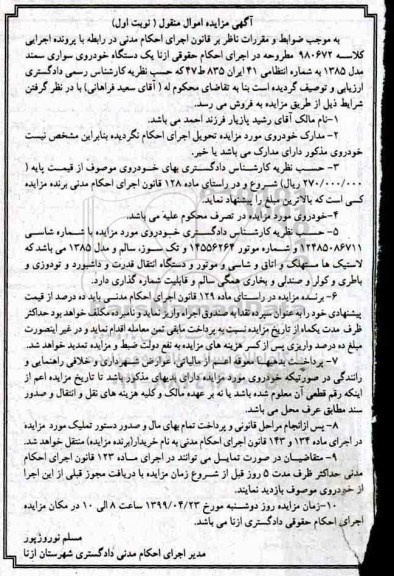 آگهی مزایده اموال منقول ( نوبت اول)
به موجب ضوابط و مقررات ناظر بر قانون اجرای احکام مدنی در رابطه با پرونده اجرایی
کلاسه ۹۸۰۶۷۲ مطروحه در اجرای احکام حقوقی ازنا یک دستگاه خودروی سواری سمند
مدل ۱۳۸۵ به شماره انتظامی ۴۱ ایران ۸۳۵ ط۴۷ که حسب نظریه کارشناس رسمی دادگستری
ارزیابی و توصیف گردیده است بنا به تقاضای محکوم له ( آقای سعید فراهانی) با در نظر گرفتن
شرایط ذیل از طریق مزایده به فروش می رسد.
۱-نام مالک آقای رشید پازیار فرزند احمد می باشد.
۲- مدارک خودروی مورد مزایده تحویل اجرای احکام نگردیده بنابراین مشخص نیست
خودروی مذکور دارای مدارک می باشد یا خیر.
۳- حسب نظریه کارشناس دادگستری بهای خودروی موصوف از قیمت پایه (
۲۷۰/۰۰۰/۰۰۰ ریال) شروع و در راستای ماده ۱۲۸ قانون اجرای احکام مدنی برنده مزایده
کسی است که بالاترین مبلغ را پیشنهاد نماید.
۴-خودروی مورد مزایده در تصرف محکوم علیه می باشد.
۵- حسب نظریه کارشناس دادگستری خودروی مورد مزایده با شماره شاسی
۱۲۴۸۵۰۸۶۷۱۱ و شماره موتور ۱۴۵۵۶۲۶۴ و تک سوز، سالم و مدل ۱۳۸۵ می باشد که
لاستیک ها مستهلک و اتاق و شاسی و موتور و دستگاه انتقال قدرت و داشبورد و تودوزی و
باطری و کولر و صندلی و بخاری همگی سالم و قابلیت شماره گذاری دارد.
۶- برنده مزایده در راستای ماده ۱۲۹ قانون اجرای احکام مدنی باید ده درصد از قیمت
پیشنهادی خود را به عنوان سپرده نقدا به صندوق اجراء واریز نماید و نامبرده مکلف خواهد بود حداکثر
ظرف مدت یکماه از تاریخ مزایده نسبت به پرداخت مابقی ثمن معامله اقدام نماید و در غیر اینصورت
مبلغ ده درصد واریزی پس از کسر هزینه های مزایده به نفع دولت ضبط و مزایده تمدید خواهد شد.
۷- پرداخت بدهیها معوقه اعم از مالیاتی، عوارض شهرداری و خلافی راهنمایی و
رانندگی در صورتیکه خودروی مورد مزایده دارای بدهیهای مذکور باشد تا تاریخ مزایده اعم از
اینکه رقم قطعی آن معلوم شده باشد یا نه بر عهده مالک و کلیه هزینه های نقل و انتقال و صدور
سند مطابق عرف محل می باشد.
۸- پس ازانجام مراحل قانونی و پرداخت تمام بهای مال و صدور دستور تملیک مورد مزایده
در اجرای ماده ۱۳۴ و ۱۴۳ قانون اجرای احکام مدنی به نام خریدار(برنده مزایده) منتقل خواهد شد.
۹- متقاضیان در صورت تمایل می توانند در اجرای ماده ۱۲۳ قانون اجرای احکام
مدنی حداکثر ظرف مدت ۵ روز قبل از شروع زمان مزایده با دریافت مجوز قبلی از این اجرا
از خودروی موصوف بازدید نمایند.
۱۰-زمان مزایده روز دوشنبه مورخ ۱۳۹۹/۰۴/۲۳ ساعت ۸ الی ۱۰ در مکان مزایده
اجرای احکام حقوقی دادگستری ازنا می باشد.
مسلم نوروزپور
مدیر اجرای احکام مدنی دادگستری شهرستان ازنا